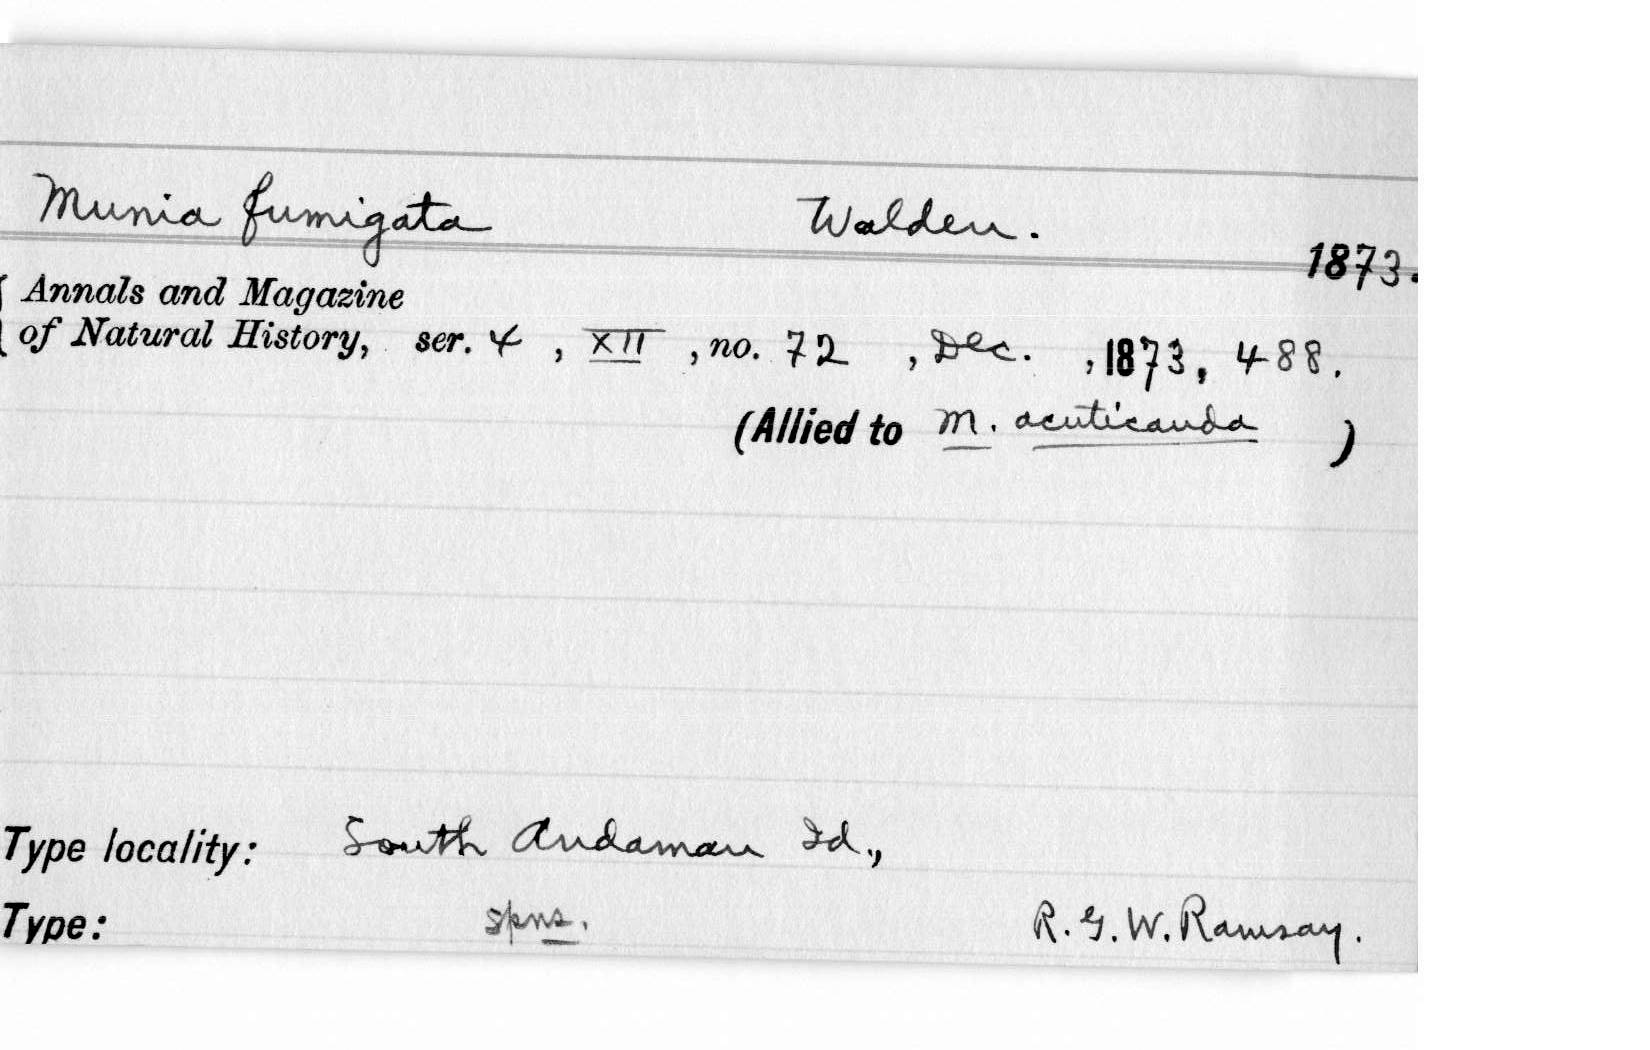 Munia fumigata Walden. 1873.
{ Annals and Magazine
of Natural History, ser. 4, XII, no. 72, Dec., 1873, 488.
(Allied to M. acuticauda )
Type locality: South Andaman Id.,
Type: spns. R. G. W. Ramsay.